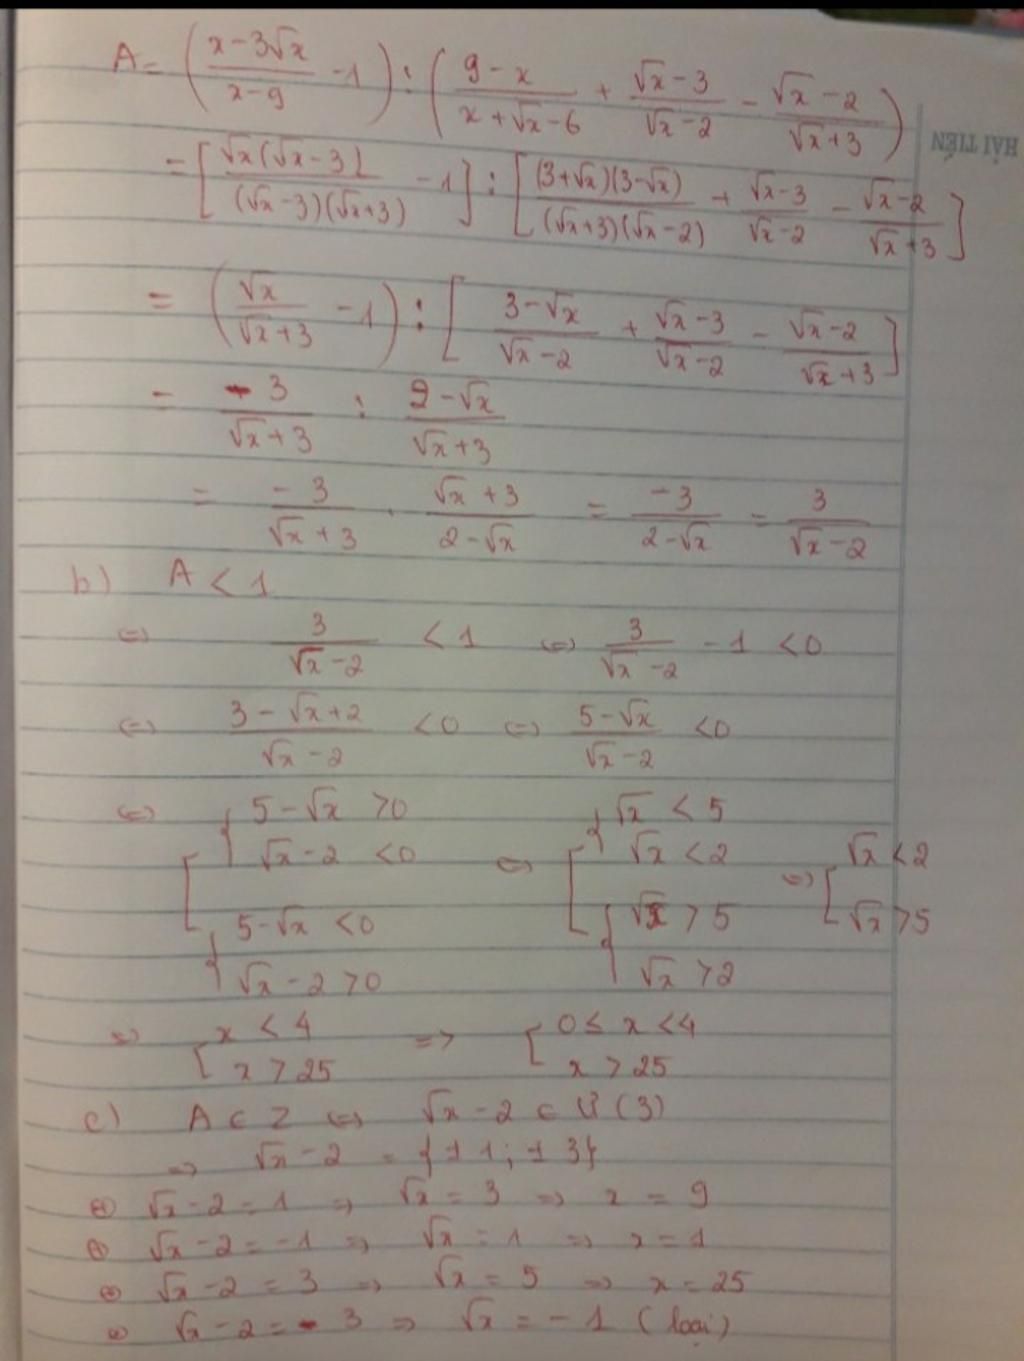 A = ((x - 3√x)/(x - 9) - 1) : ((9 - x)/(x + √x - 6) + (√x - 3)/(√x - 2) - (√x - 2)/(√x + 3))
HẢI TIẾN
= [√x(√x - 3)/((√x - 3)(√x + 3)) - 1] : [(3 + √x)(3 - √x)/((√x + 3)(√x - 2)) + (√x - 3)/(√x - 2) - (√x - 2)/(√x + 3)]
= (√x/(√x + 3) - 1) : [(3 - √x)/(√x - 2) + (√x - 3)/(√x - 2) - (√x - 2)/(√x + 3)]
= -3/(√x + 3) : (2 - √x)/(√x + 3)
= -3/(√x + 3) . (√x + 3)/(2 - √x) = -3/(2 - √x) = 3/(√x - 2)
b) A < 1
⇔ 3/(√x - 2) < 1 ⇔ 3/(√x - 2) - 1 < 0
⇔ (3 - √x + 2)/(√x - 2) < 0 ⇔ (5 - √x)/(√x - 2) < 0
⇔ [ { 5 - √x > 0 [ { √x < 5
√x - 2 < 0 ⇔ √x < 2 ⇔ [ √x < 2
{ 5 - √x < 0 { √x > 5 √x > 5
√x - 2 > 0 √x > 2
⇔ [ x < 4 => [ 0 ≤ x < 4
x > 25 x > 25
c) A ∈ Z ⇔ √x - 2 ∈ Ư(3)
=> √x - 2 = {±1; ±3}
⊕ √x - 2 = 1 => √x = 3 => x = 9
⊕ √x - 2 = -1 => √x = 1 => x = 1
⊕ √x - 2 = 3 => √x = 5 => x = 25
⊕ √x - 2 = -3 => √x = -1 (loại)